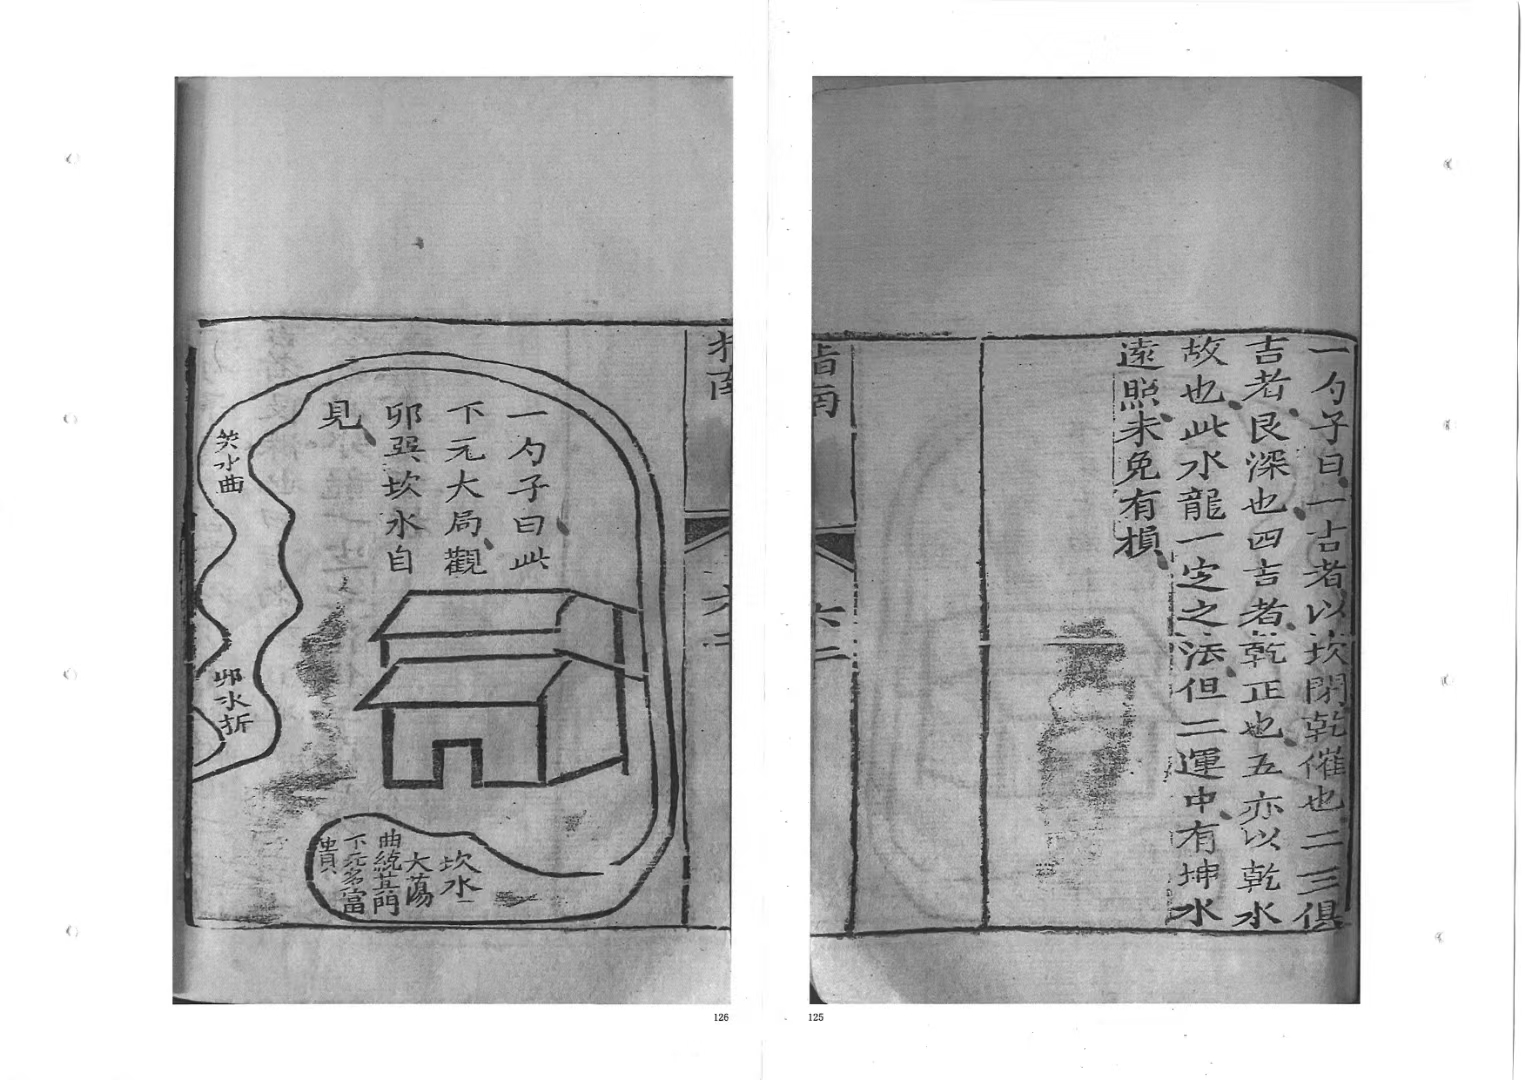 一勺子曰一吉者以坎閉乾催也二三俱
吉者艮深也四吉者乾正也五亦以乾水
故也此水龍一定之法但二運中有坤水
遠照未免有損
指南
六二
125
一勺子曰此
下元大局觀
卯巽坎水自
見
水曲
卯水折
坎水一
大蕩
曲繞其門
下元名富
貴
126